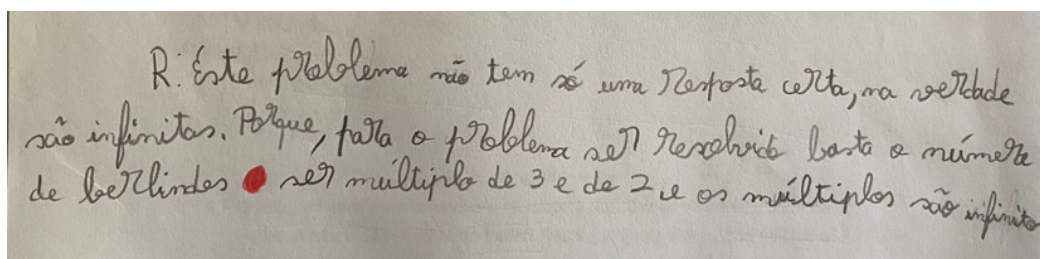 R: Este problema não tem só uma resposta certa, na verdade
são infinitas. Porque, para o problema ser resolvido basta o número
de berlindes ser múltiplo de 3 e de 2 e os múltiplos são infinito